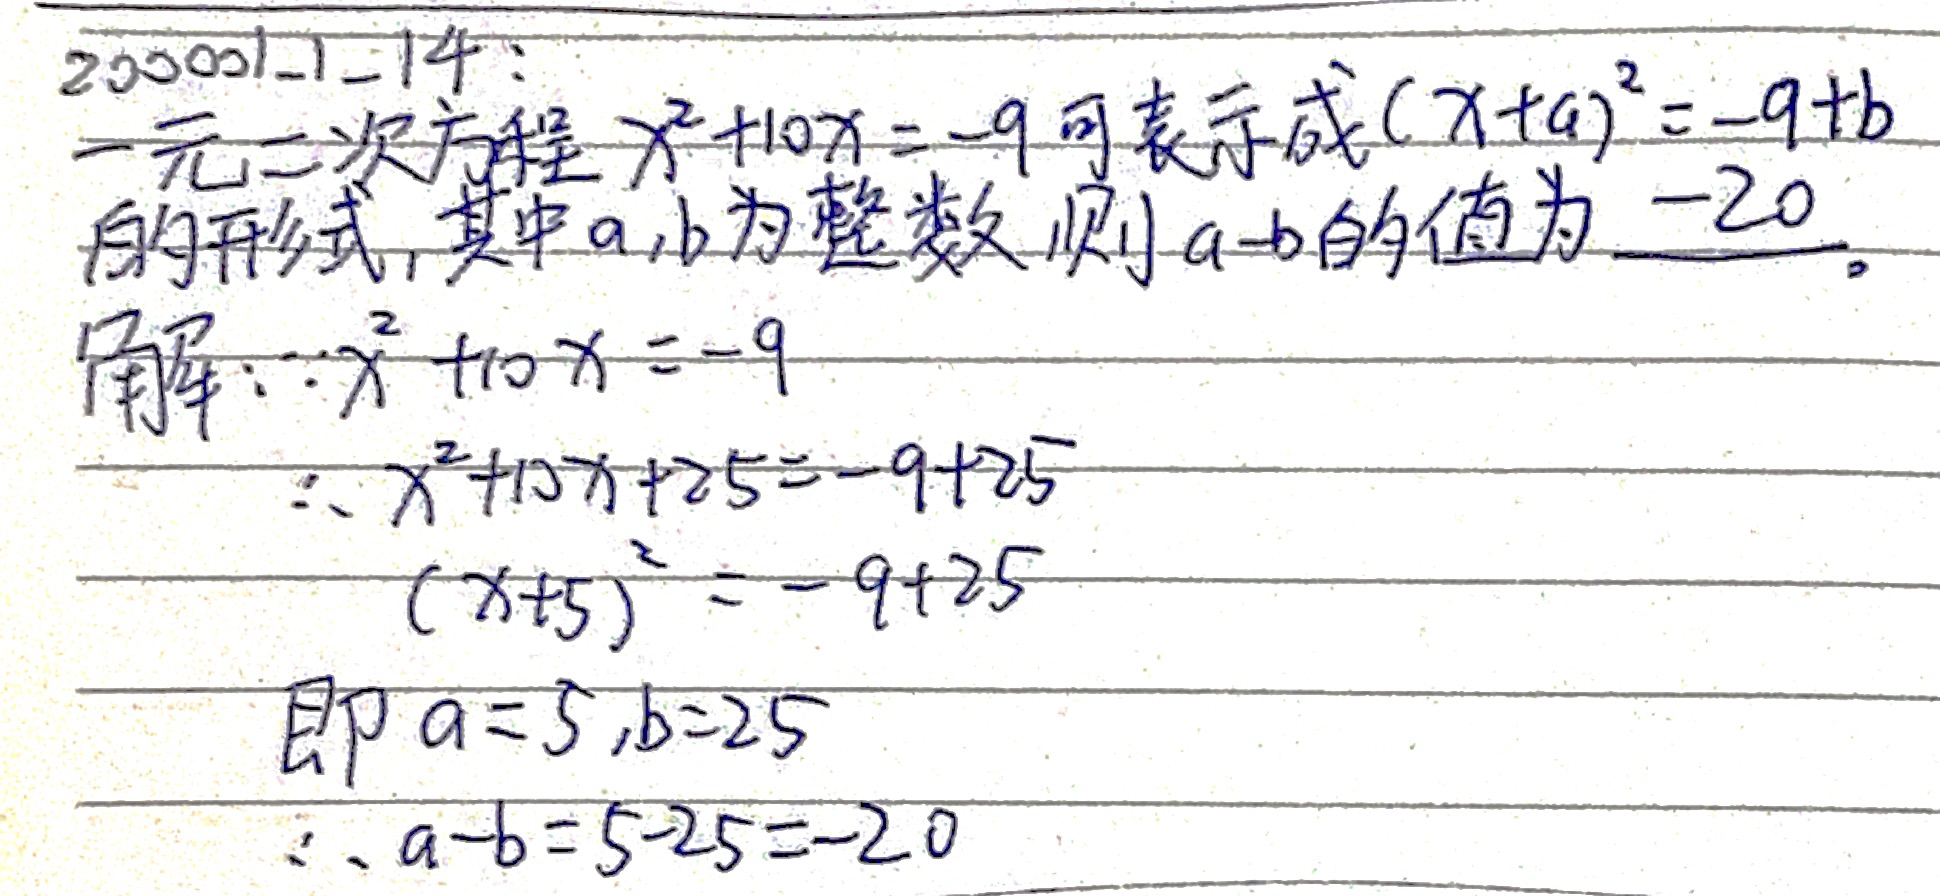 200001-1-14:
一元二次方程 x²+10x=-9可表示成(x+a)²=-9+b
的形式,其中a,b为整数则a-b的值为 -20 。
解:∵x²+10x=-9
∴x²+10x+25=-9+25
(x+5)²=-9+25
即a=5,b=25
∴a-b=5-25=-20